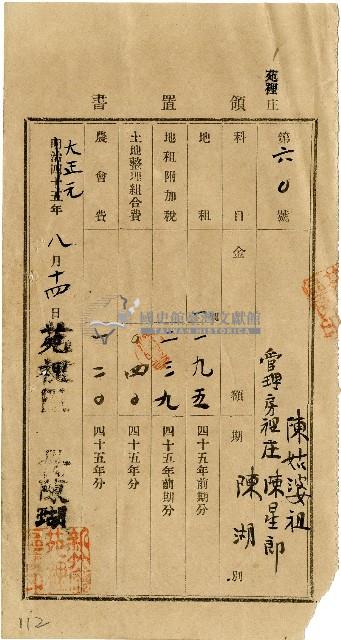 苑裡庄
領置書
第六〇號
陳姑婆祖
管理房裡庄 陳星郎
陳湖
科目 金額 期別
地租 二九五 四十五年前期分
地租附加稅 二三九 四十五年前期分
土地整理組合費 〇四〇 四十五年分
農會費 二〇 四十五年分
明治四十五年
大正元 八月十四日
苑裡 陳瑚
國史館臺灣文獻館
TAIWAN HISTORICA
112